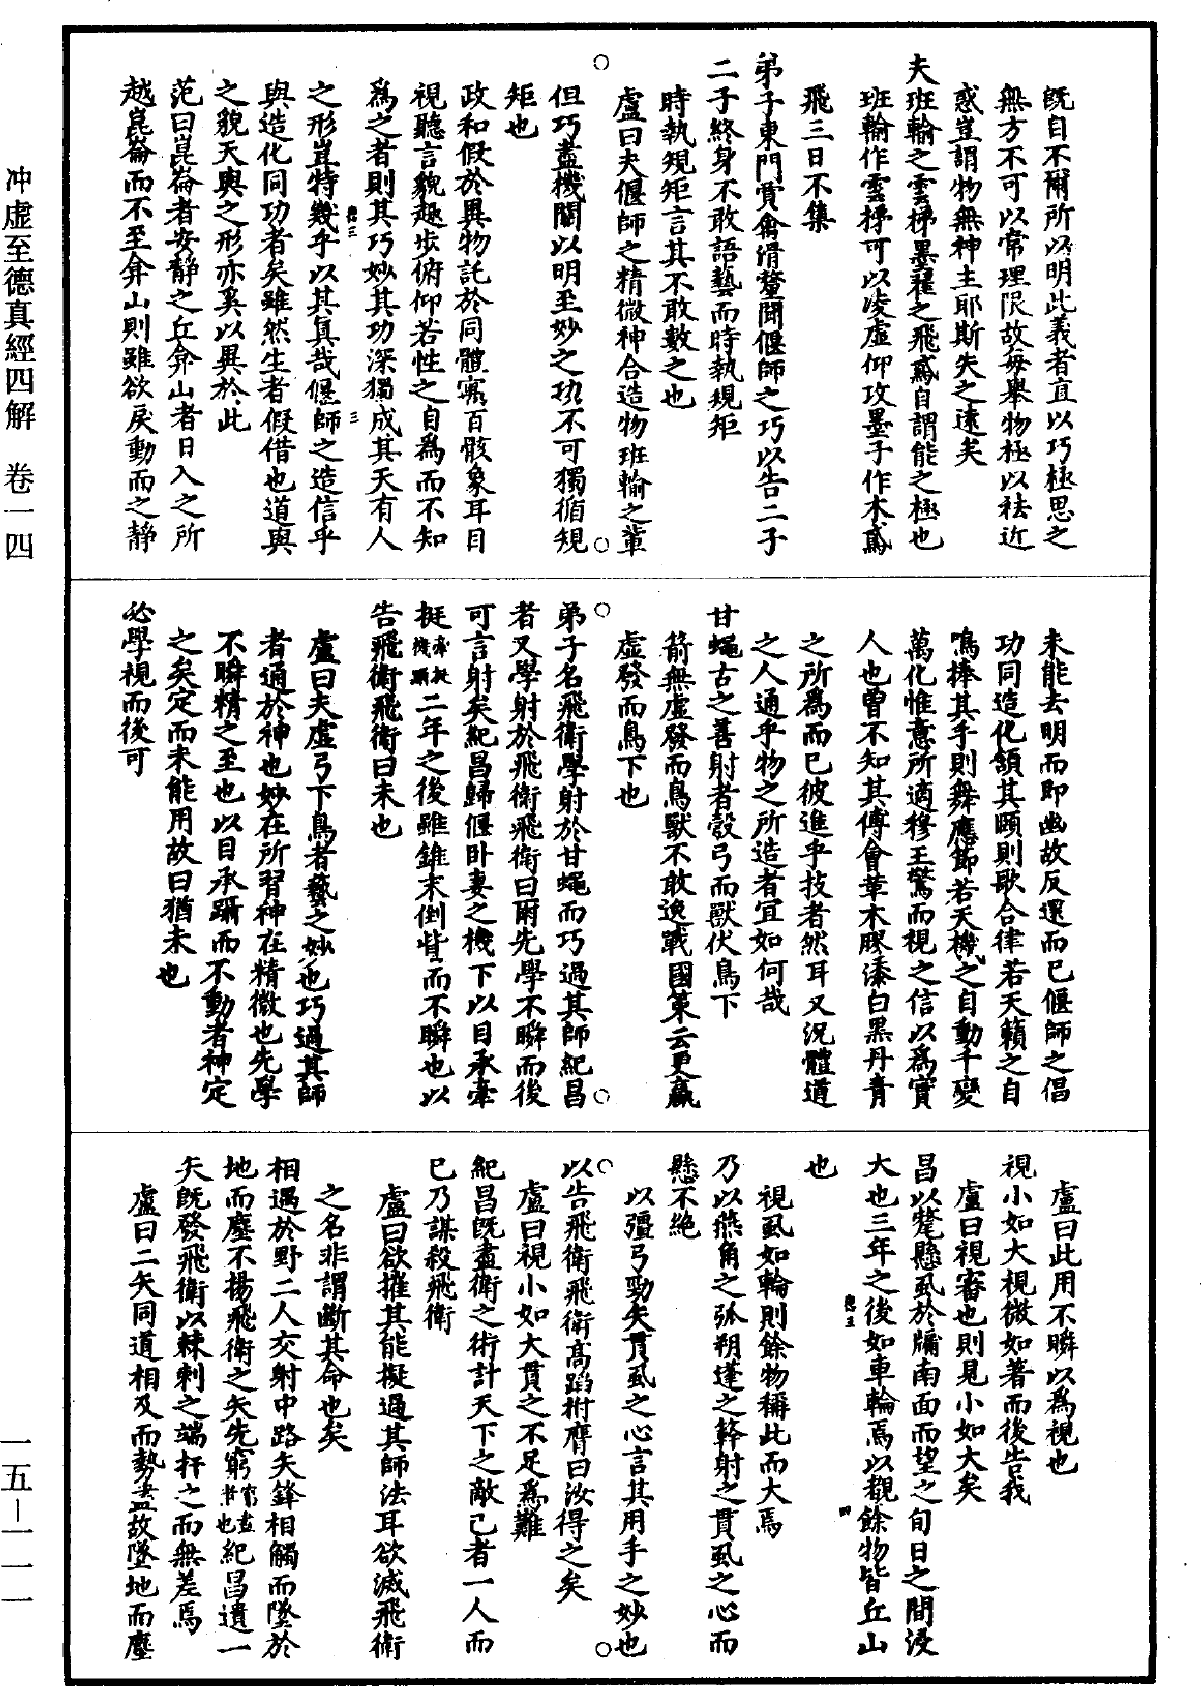 冲虛至德真經四解　卷一四
一五—一一一
既自不爾所以明此義者直以巧極思之
無方不可以常理限故每舉物極以祛近
惑豈謂物無神主耶斯失之遠矣
夫班輸之雲梯墨翟之飛鳶自謂能之極也
班輸作雲梯可以凌虛仰攻墨子作木鳶
飛三日不集
弟子東門賈禽滑釐聞偃師之巧以告二子
二子終身不敢語藝而時執規矩
時執規矩言其不敢數之也
盧曰夫偃師之精微神合造物班輸之輩
但巧盡機關以明至妙之功不可獨循規
矩也
政和假於異物託於同體窾百骸象耳目
視聽言貌趣步俯仰若性之自為而不知
為之者則其巧妙其功深獨成其天有人
之形豈特幾乎以其真哉偃師之造信乎
與造化同功者矣雖然生者假借也道與
之貌天與之形亦奚以異於此
范曰崑崙者安靜之丘弇山者日入之所
越崑崙而不至弇山則雖欲戾動而之靜
未能去明而即幽故反還而已偃師之倡
功同造化顉其頤則歌合律若天籟之自
鳴捧其手則舞應節若天機之自動千變
萬化惟意所適穆王驚而視之信以為實
人也曾不知其傅會革木膠漆白黑丹青
之所為而已彼進乎技者然耳又況體道
之人通乎物之所造者宜如何哉
甘蠅古之善射者彀弓而獸伏鳥下
箭無虛發而鳥獸不敢逸戰國策云更羸
虛發而鳥下也
弟子名飛衛學射於甘蠅而巧過其師紀昌
者又學射於飛衛飛衛曰爾先學不瞬而後
可言射矣紀昌歸偃臥妻之機下以目承牽
挺牽挺機躡二年之後雖錐末倒眥而不瞬也以
告飛衛飛衛曰未也
盧曰夫虛弓下鳥者藝之妙也巧過其師
者通於神也妙在所習神在精微也先學
不瞬精之至也以目承躡而不動者神定
之矣定而未能用故曰猶未也
必學視而後可
盧曰此用不瞬以為視也
視小如大視微如著而後告我
盧曰視審也則見小如大矣
昌以氂懸虱於牖南面而望之旬日之間浸
大也三年之後如車輪焉以觀餘物皆丘山
也
視虱如輪則餘物稱此而大焉
乃以燕角之弧朔蓬之簳射之貫虱之心而
懸不絕
以彊弓勁矢貫虱之心言其用手之妙也
以告飛衛飛衛高蹈拊膺曰汝得之矣
盧曰視小如大貫之不足為難
紀昌既盡衛之術計天下之敵己者一人而
已乃謀殺飛衛
盧曰欲摧其能擬過其師法耳欲滅飛衛
之名非謂斷其命也矣
相遇於野二人交射中路矢鋒相觸而墜於
地而塵不揚飛衛之矢先窮窮盡也紀昌遺一
矢既發飛衛以棘刺之端扞之而無差焉
盧曰二矢同道相及而勢盡故墜地而塵